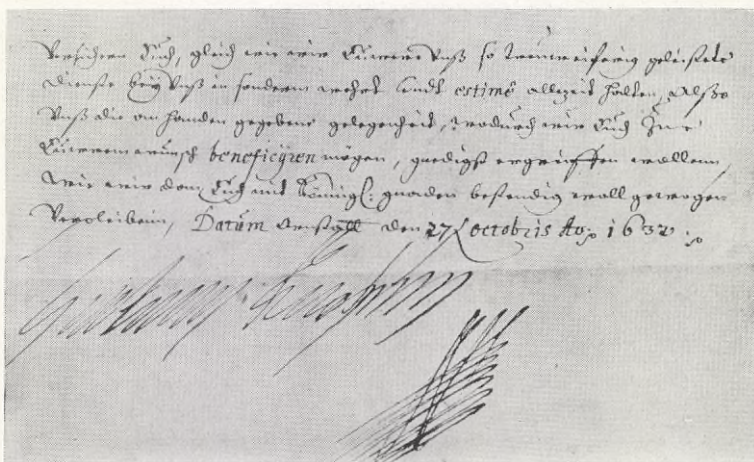 Versichern Euch, gleich wie wir Euwere Unß so trew eiferig geleistete
dienste bey Unß in sonderm wehrt undt estimê allezeit halten, Alßo
Unß die an handen gegebene gelegenheit, wodurch wir Euch Zue
Euwerem wunsch beneficyren mögen, gnedigst ergreiffen wollenn
Wie wir dan Euch mit Königl: gnaden bestendig woll gewogen
Verpleibenn, Datum Arnstatt den 27 octobris Ao: 1632
Gustavus Adolphus